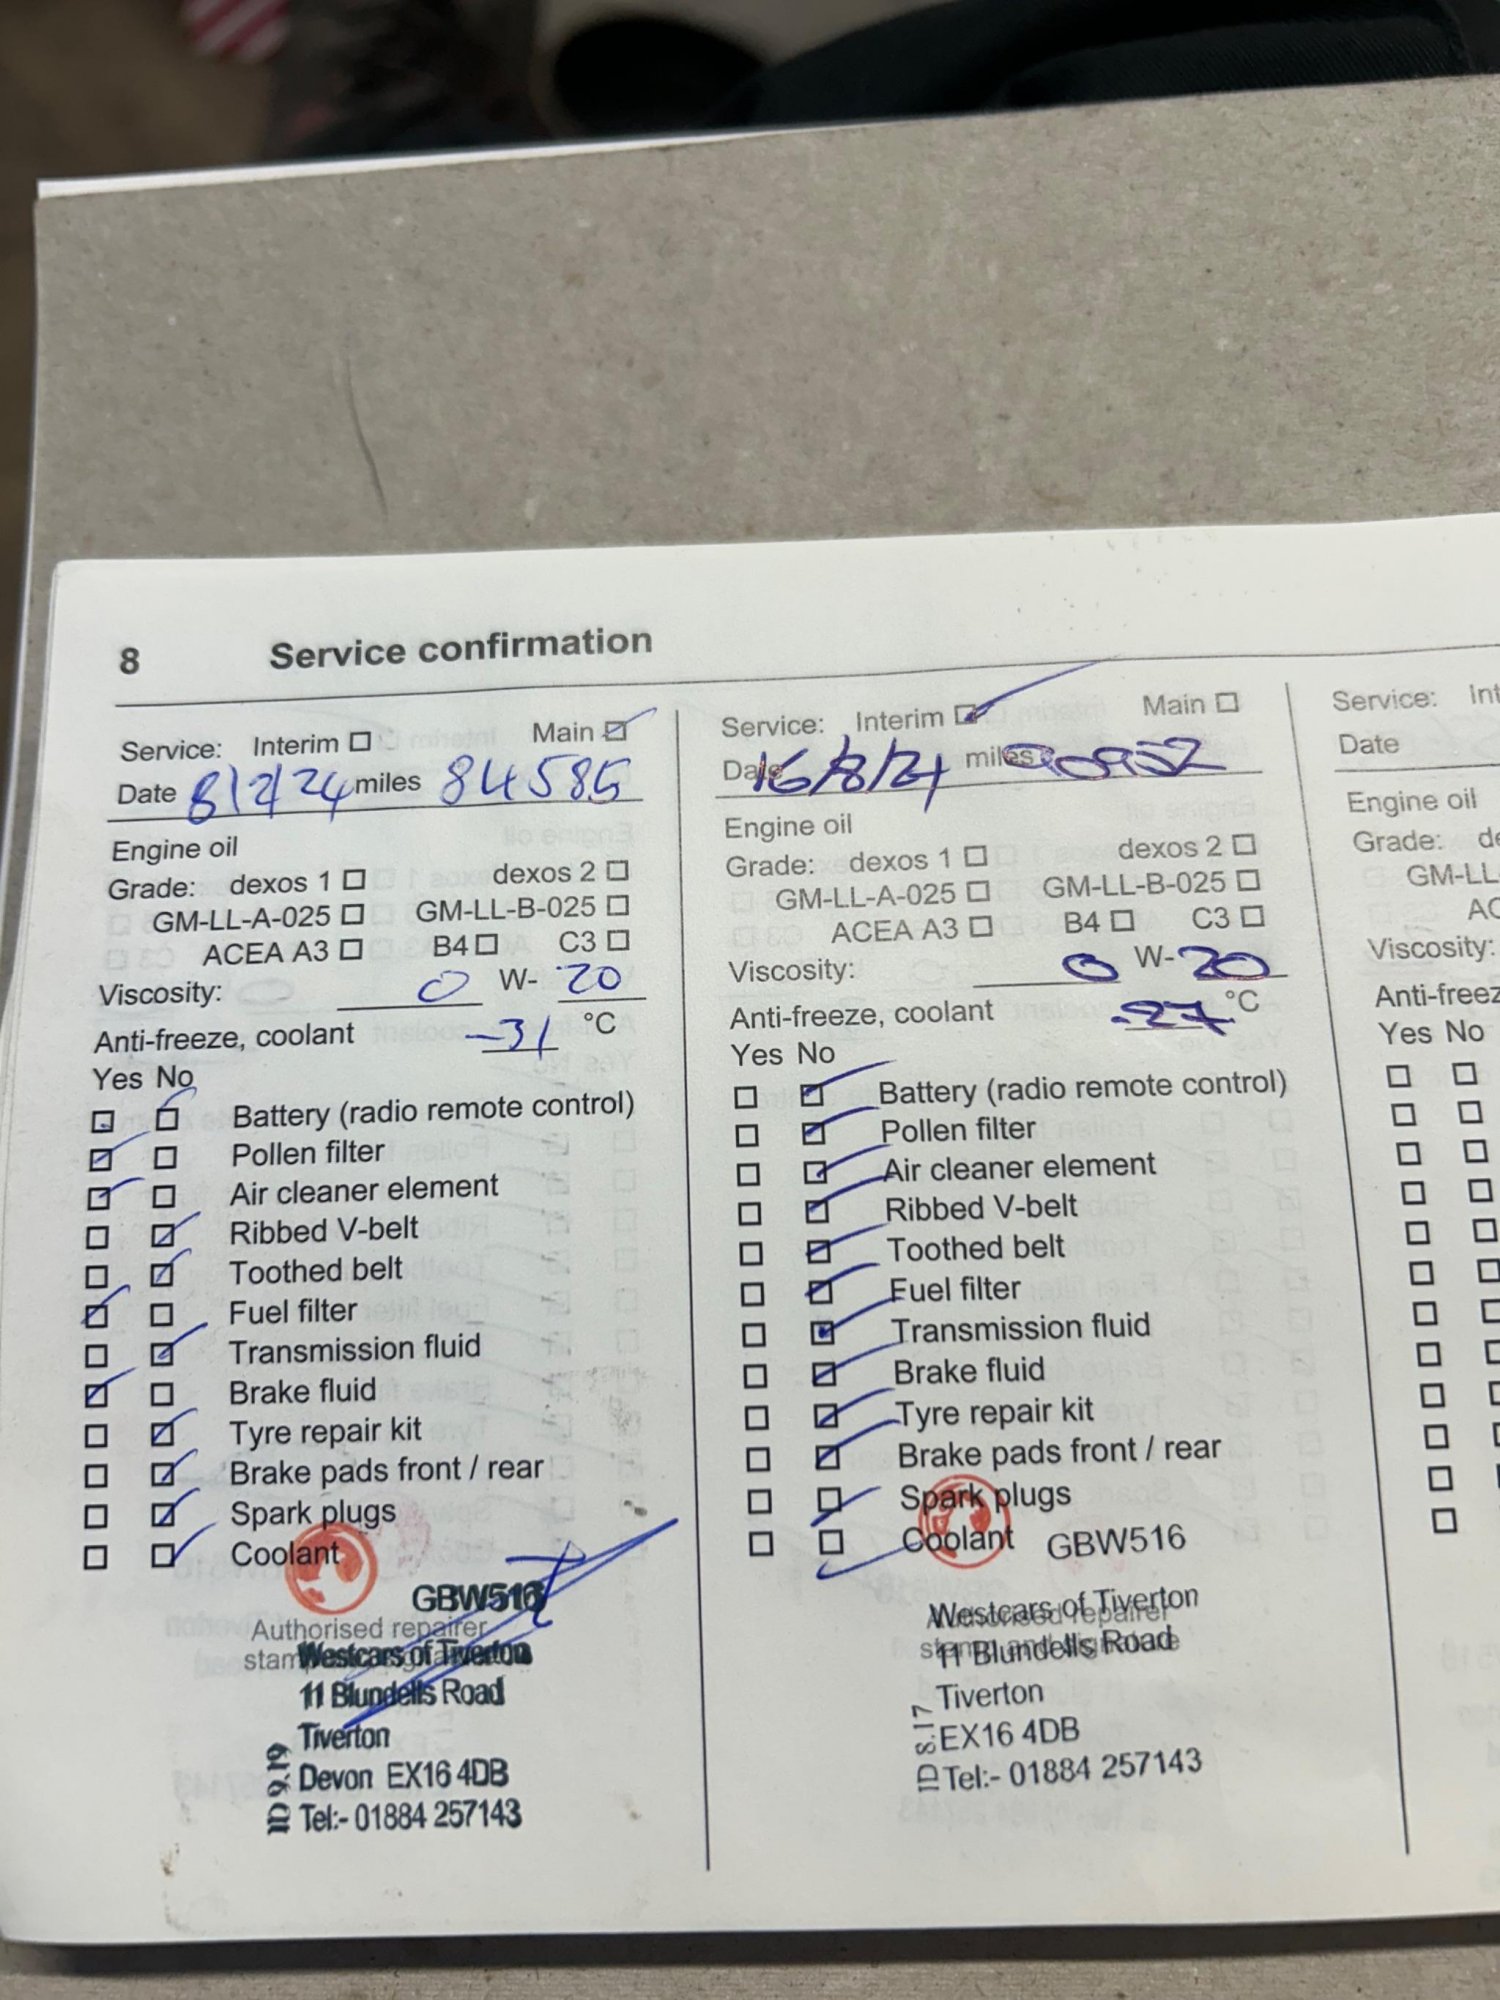 8 Service confirmation
Service: Interim Main
Date 8/2/24 miles 84585
Engine oil
Grade: dexos 1 dexos 2
GM-LL-A-025 GM-LL-B-025
ACEA A3 B4 C3
Viscosity: 0 W- 20
Anti-freeze, coolant -31 °C
Yes No
Battery (radio remote control)
Pollen filter
Air cleaner element
Ribbed V-belt
Toothed belt
Fuel filter
Transmission fluid
Brake fluid
Tyre repair kit
Brake pads front / rear
Spark plugs
Coolant
GBW516
Authorised repairer
Westcars of Tiverton
11 Blundells Road
Tiverton
Devon EX16 4DB
Tel:- 01884 257143
Service: Interim Main
Date 16/8/24 miles 90952
Engine oil
Grade: dexos 1 dexos 2
GM-LL-A-025 GM-LL-B-025
ACEA A3 B4 C3
Viscosity: 0 W- 20
Anti-freeze, coolant -27 °C
Yes No
Battery (radio remote control)
Pollen filter
Air cleaner element
Ribbed V-belt
Toothed belt
Fuel filter
Transmission fluid
Brake fluid
Tyre repair kit
Brake pads front / rear
Spark plugs
Coolant
GBW516
Authorised repairer
stamp and signature
Westcars of Tiverton
11 Blundells Road
Tiverton
EX16 4DB
Tel:- 01884 257143
ID 8.17
Service: Int
Date
Engine oil
Grade: de
GM-LL-
AC
Viscosity:
Anti-freez
Yes No